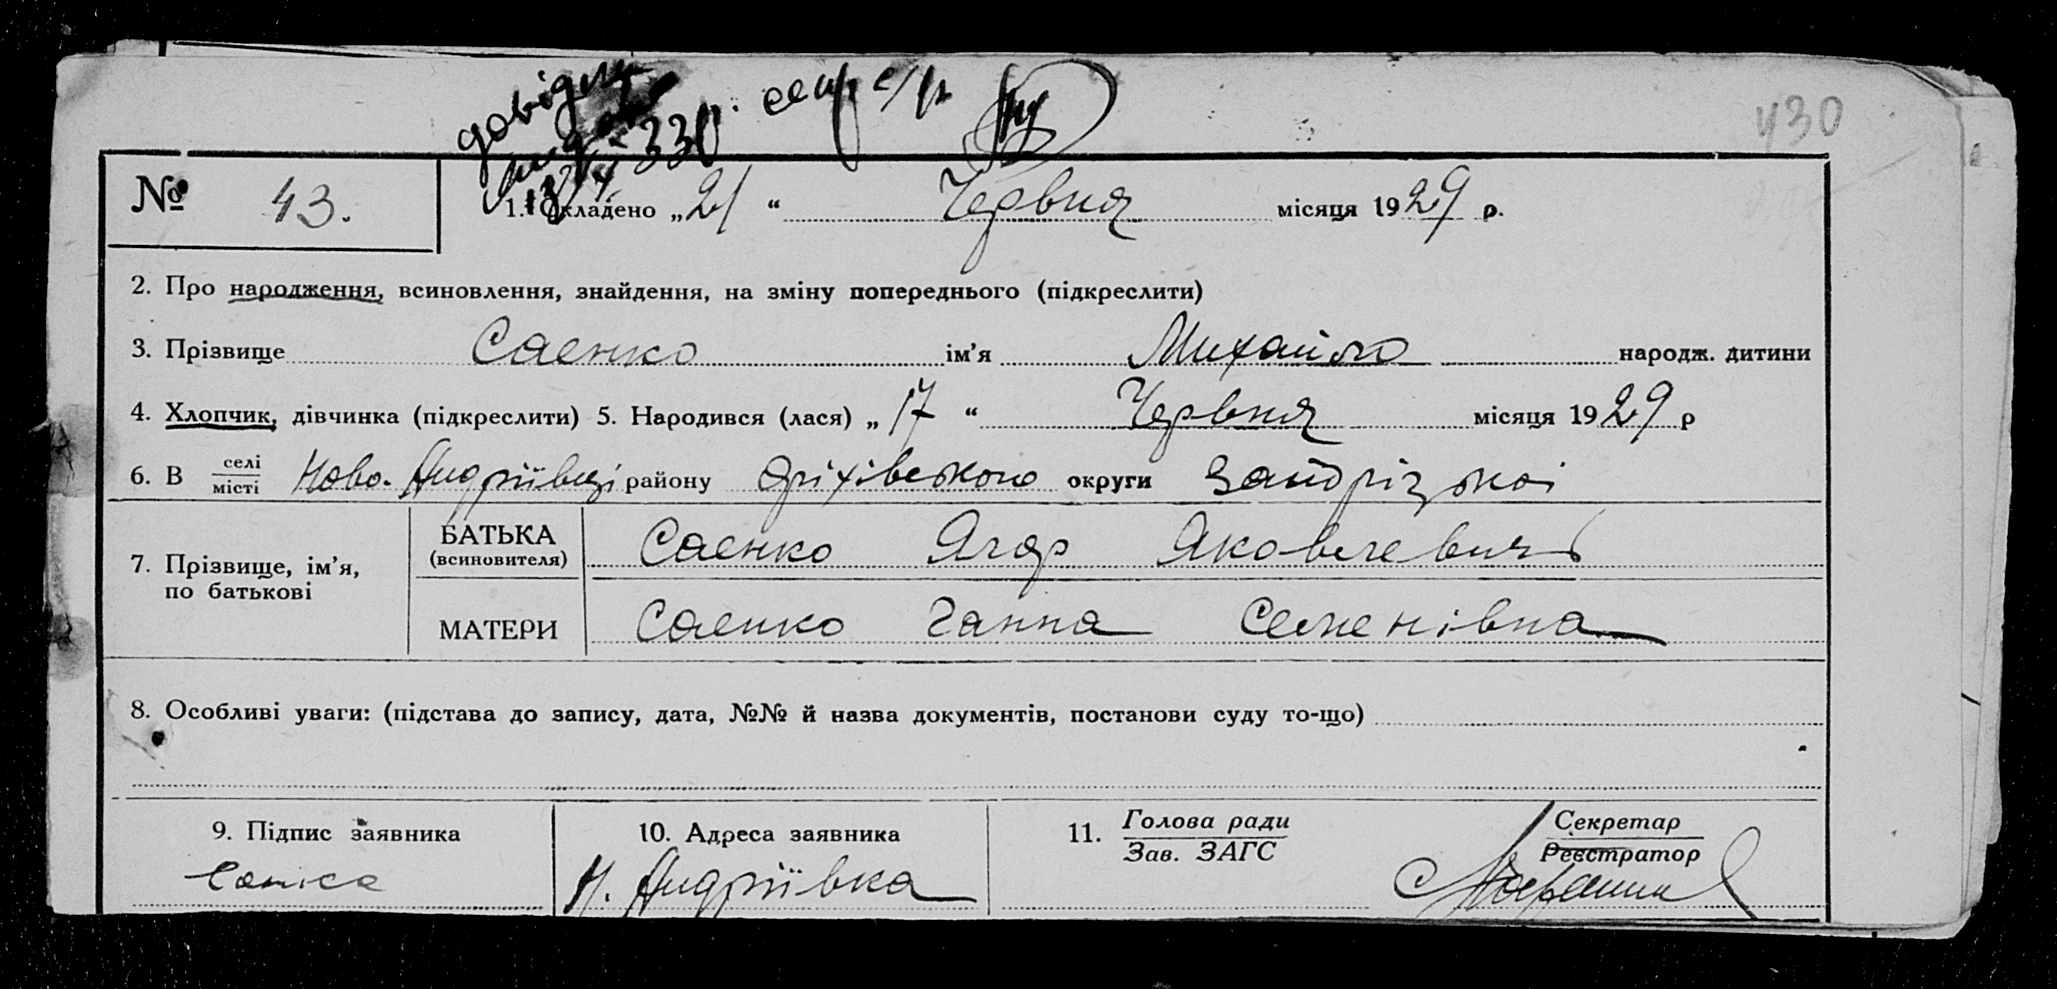 довідку
330.
430
№ 43. 1. Складено „21“ Червня місяця 1929 р.
2. Про народження, всиновлення, знайдення, на зміну попереднього (підкреслити)
3. Прізвище Саенко ім’я Михайло народж. дитини
4. Хлопчик, дівчинка (підкреслити) 5. Народився (лася) „17“ Червня місяця 1929 р
6. В селі/місті Ново-Андріївці району Оріхівського округи Запорізької
7. Прізвище, ім’я,
по батькові
БАТЬКА
(всиновителя)
Саенко Ягор Яковлевич
МАТЕРИ Саенко Ганна Семенівна
8. Особливі уваги: (підстава до запису, дата, №№ й назва документів, постанови суду то-що)
9. Підпис заявника 10. Адреса заявника 11. Голова ради Секретар
Зав. ЗАГС Реєстратор
Н. Андріївка